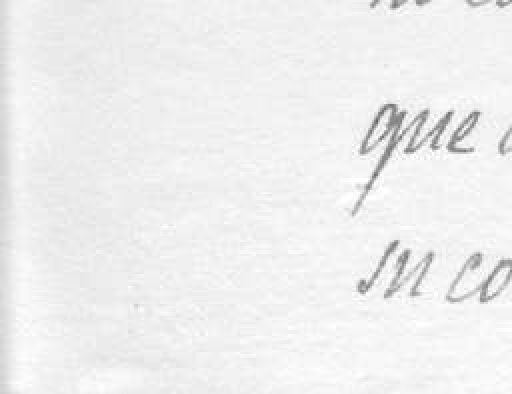 que
su co